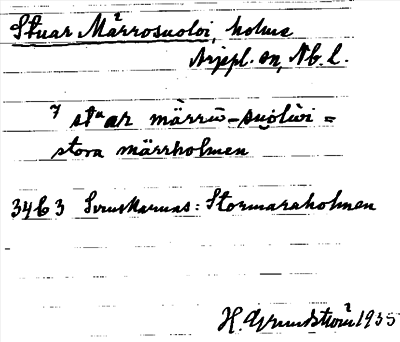 Stuar Márrosuoloi, holme
Arjepl. sn, Nb. l.
7 stuar märrū-suolūi =
stora märrholmen
3463 Svenskarnas: Stormaraholmen
H. Grundström 1935